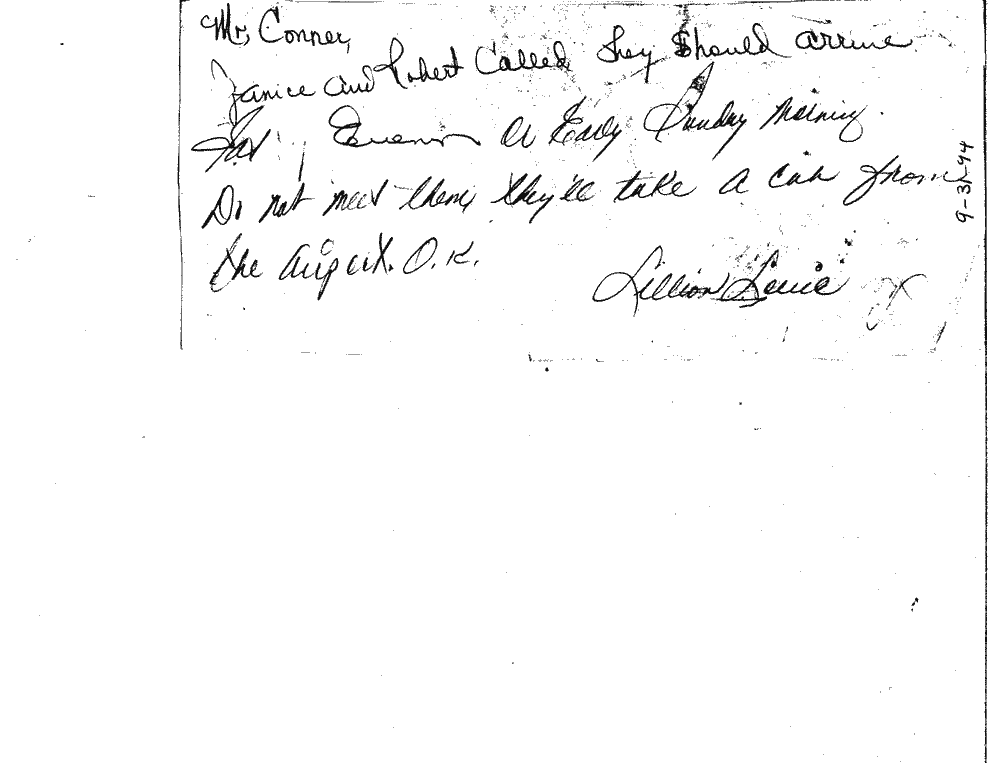 Mr. Conner,
Janice and Robert Called They Should arrive
Sat, Evening or Early Sunday Morning.
Do not meet them, they'll take a cab from
the airport. O.K.
Lillian
9-3-94